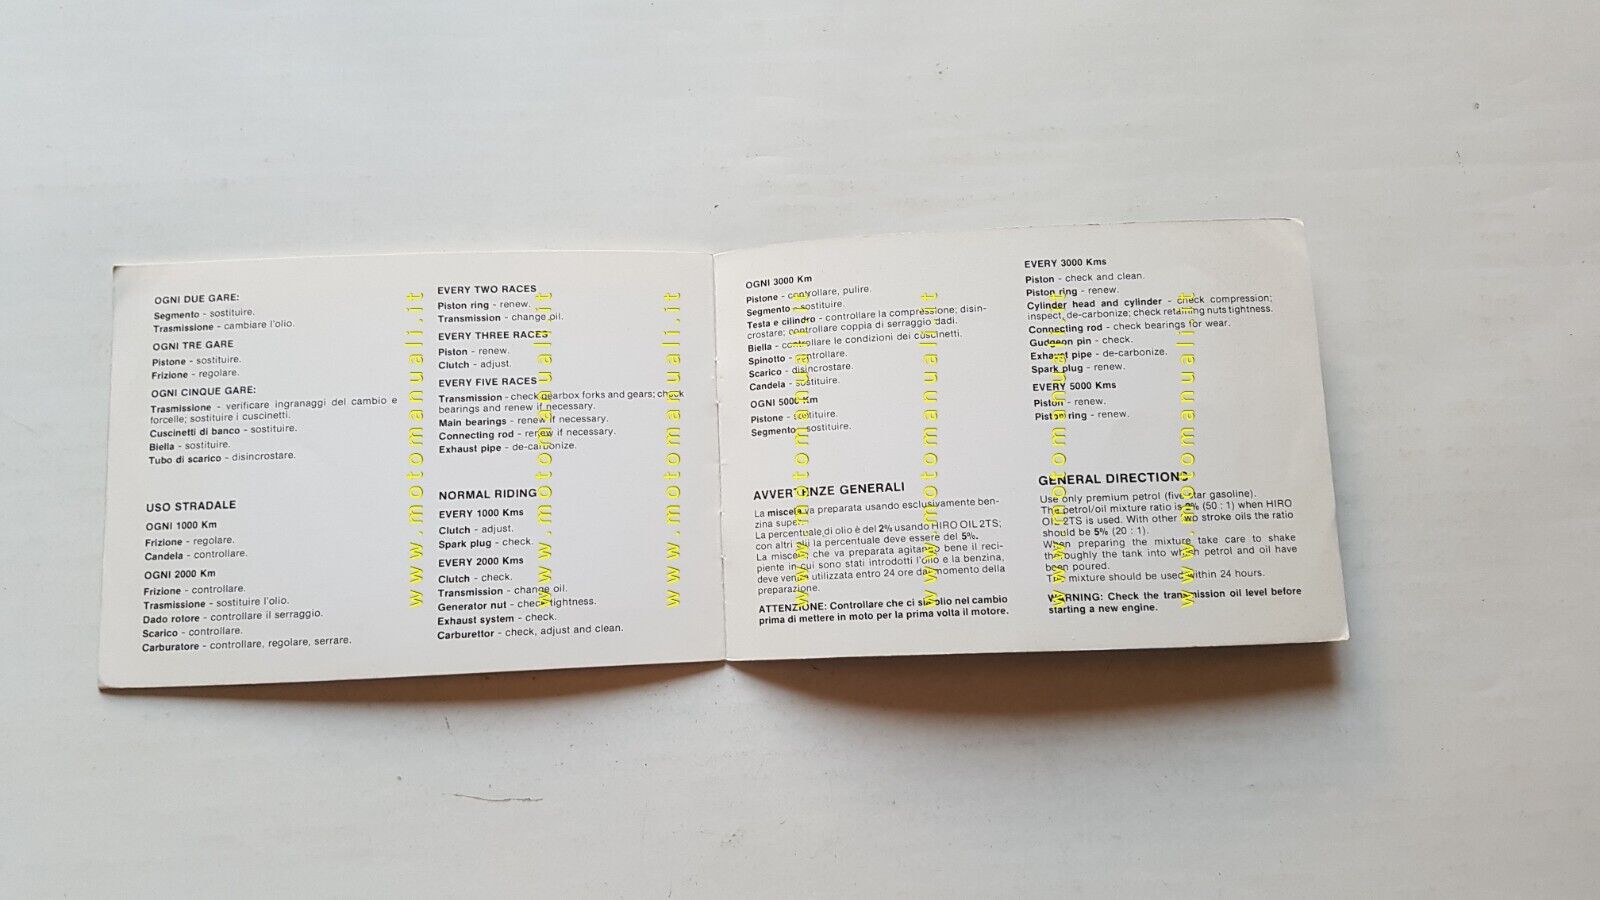 OGNI DUE GARE:
Segmento - sostituire.
Trasmissione - cambiare l'olio.
OGNI TRE GARE
Pistone - sostituire.
Frizione - regolare.
OGNI CINQUE GARE:
Trasmissione - verificare ingranaggi del cambio e
forcelle; sostituire i cuscinetti.
Cuscinetti di banco - sostituire.
Biella - sostituire.
Tubo di scarico - disincrostare.
USO STRADALE
OGNI 1000 Km
Frizione - regolare.
Candela - controllare.
OGNI 2000 Km
Frizione - controllare.
Trasmissione - sostituire l'olio.
Dado rotore - controllare il serraggio.
Scarico - controllare.
Carburatore - controllare, regolare, serrare.
EVERY TWO RACES
Piston ring - renew.
Transmission - change oil.
EVERY THREE RACES
Piston - renew.
Clutch - adjust.
EVERY FIVE RACES
Transmission - check gearbox forks and gears; check
bearings and renew if necessary.
Main bearings - renew if necessary.
Connecting rod - renew if necessary.
Exhaust pipe - de-carbonize.
NORMAL RIDING
EVERY 1000 Kms
Clutch - adjust.
Spark plug - check.
EVERY 2000 Kms
Clutch - check.
Transmission - change oil.
Generator nut - check tightness.
Exhaust system - check.
Carburettor - check, adjust and clean.
OGNI 3000 Km
Pistone - controllare, pulire.
Segmento - sostituire.
Testa e cilindro - controllare la compressione; disin-
crostare; controllare coppia di serraggio dadi.
Biella - controllare le condizioni dei cuscinetti.
Spinotto - controllare.
Scarico - disincrostare.
Candela - sostituire.
OGNI 5000 Km
Pistone - sostituire.
Segmento - sostituire.
AVVERTENZE GENERALI
La miscela va preparata usando esclusivamente ben-
zina super.
La percentuale di olio è del 2% usando HIRO OIL 2TS;
con altri olii la percentuale deve essere del 5%.
La miscela che va preparata agitando bene il reci-
piente in cui sono stati introdotti l'olio e la benzina,
deve venire utilizzata entro 24 ore dal momento della
preparazione.
ATTENZIONE: Controllare che ci sia olio nel cambio
prima di mettere in moto per la prima volta il motore.
EVERY 3000 Kms
Piston - check and clean.
Piston ring - renew.
Cylinder head and cylinder - check compression;
inspect, de-carbonize; check retaining nuts tightness.
Connecting rod - check bearings for wear.
Gudgeon pin - check.
Exhaust pipe - de-carbonize.
Spark plug - renew.
EVERY 5000 Kms
Piston - renew.
Piston ring - renew.
GENERAL DIRECTIONS
Use only premium petrol (five star gasoline).
The petrol/oil mixture ratio is 2% (50 : 1) when HIRO
OIL 2TS is used. With other two stroke oils the ratio
should be 5% (20 : 1).
When preparing the mixture take care to shake
thoroughly the tank into which petrol and oil have
been poured.
The mixture should be used within 24 hours.
WARNING: Check the transmission oil level before
starting a new engine.
www.motomanuali.it
www.motomanuali.it
www.motomanuali.it
www.motomanuali.it
www.motomanuali.it
www.motomanuali.it
www.motomanuali.it